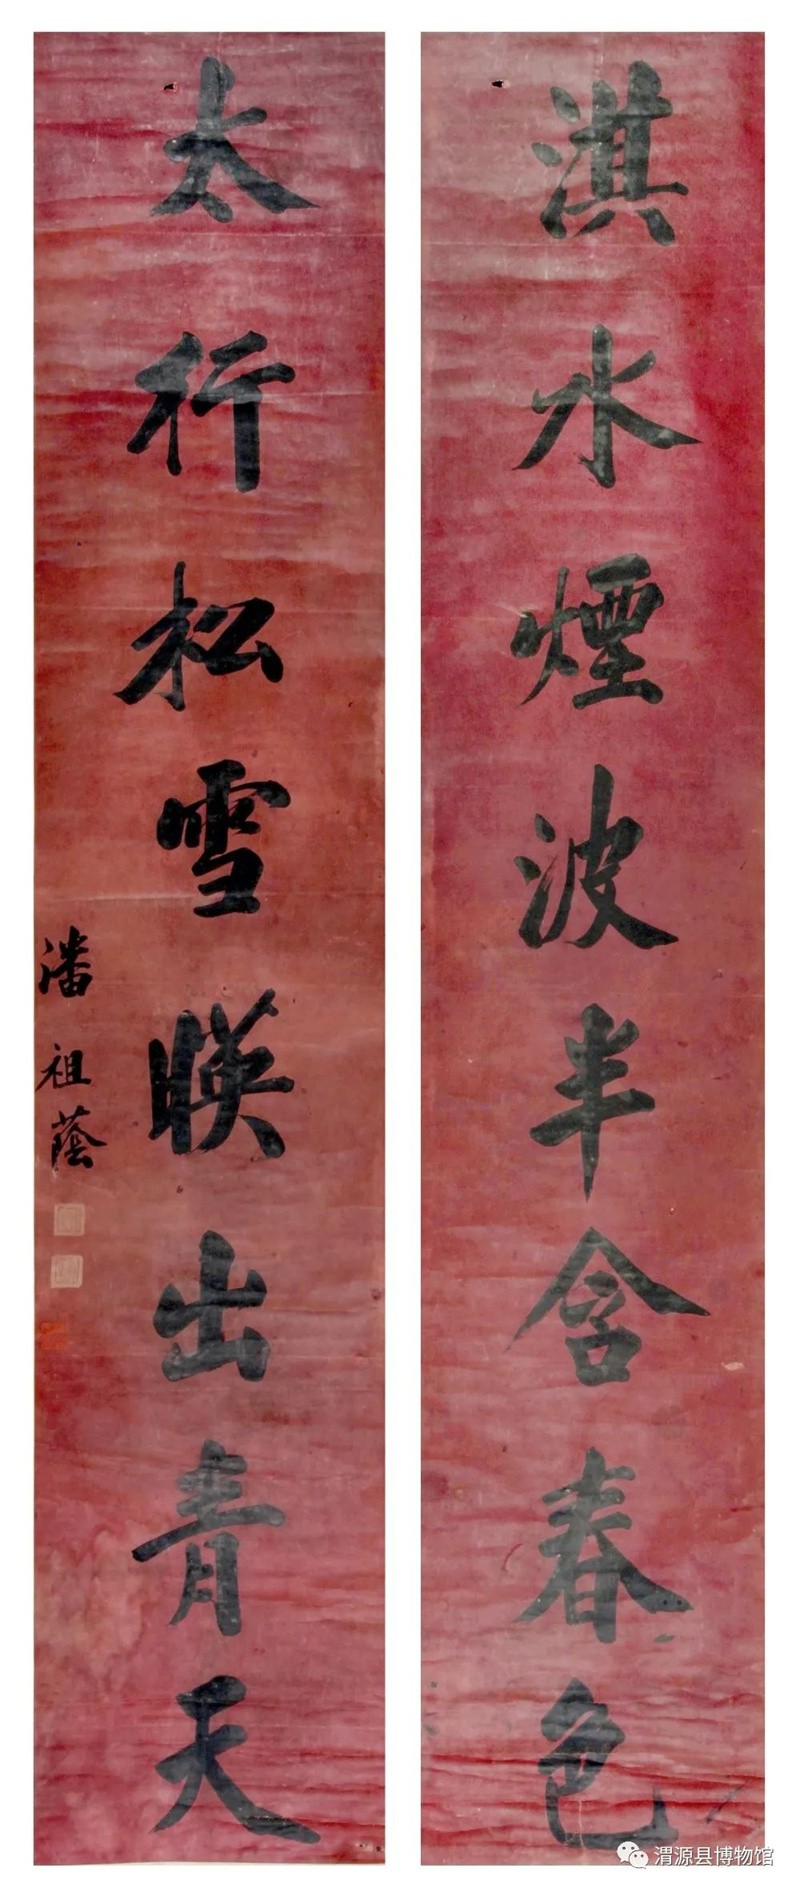 淇水煙波半含春色
太行松雪暎出青天
潘祖蔭
渭源县博物馆